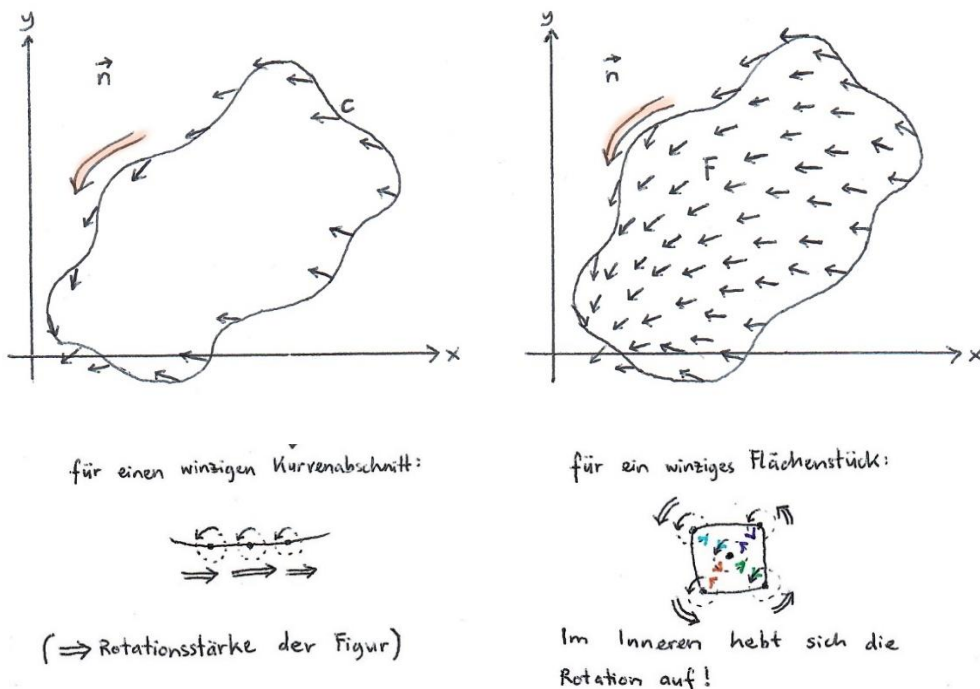 y
n⃗
C
x
y
n⃗
F
x
für einen winzigen Kurvenabschnitt:
(⇒ Rotationsstärke der Figur)
für ein winziges Flächenstück:
Im Inneren hebt sich die
Rotation auf!